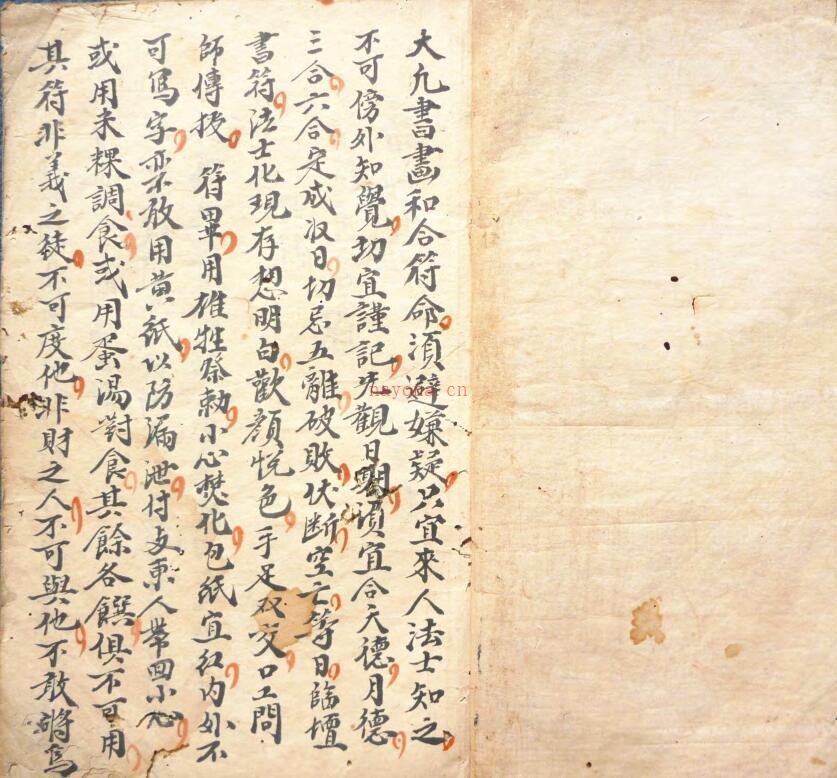 大凢書畫和合符命須避嫌疑只宜來人法士知之
不可傍外知覺切宜謹記先觀日期須宜合天德月德
三合六合定成收日切忌五離破敗伏断空亡等日臨壇
書符法士化現存想明白歡顔悅色手足双交口工問
師傳授符畢用雄牲祭勅小心焚化包紙宜紅内外不
可寫字亦不敢用黄紙以防漏泄付与東人帶回小心
或用米粿調食或用蛋湯對食其餘各饌俱不可用
其符非義之徒不可度他非財之人不可與他不敢謄寫
nayona.cn